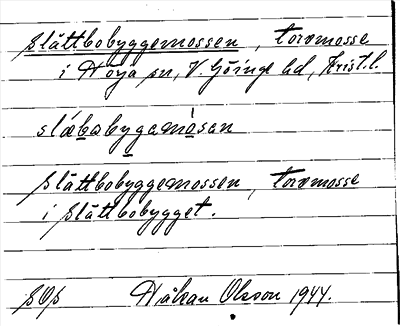 Slättbobyggemossen, torvmosse
i Nöja sn, V. Göinge hd, Krist. l.
slæ̀babygamòsan
Slättbobyggemossen, torvmosse
i Slättbobygget.
SOS Håkan Olsson 1944.